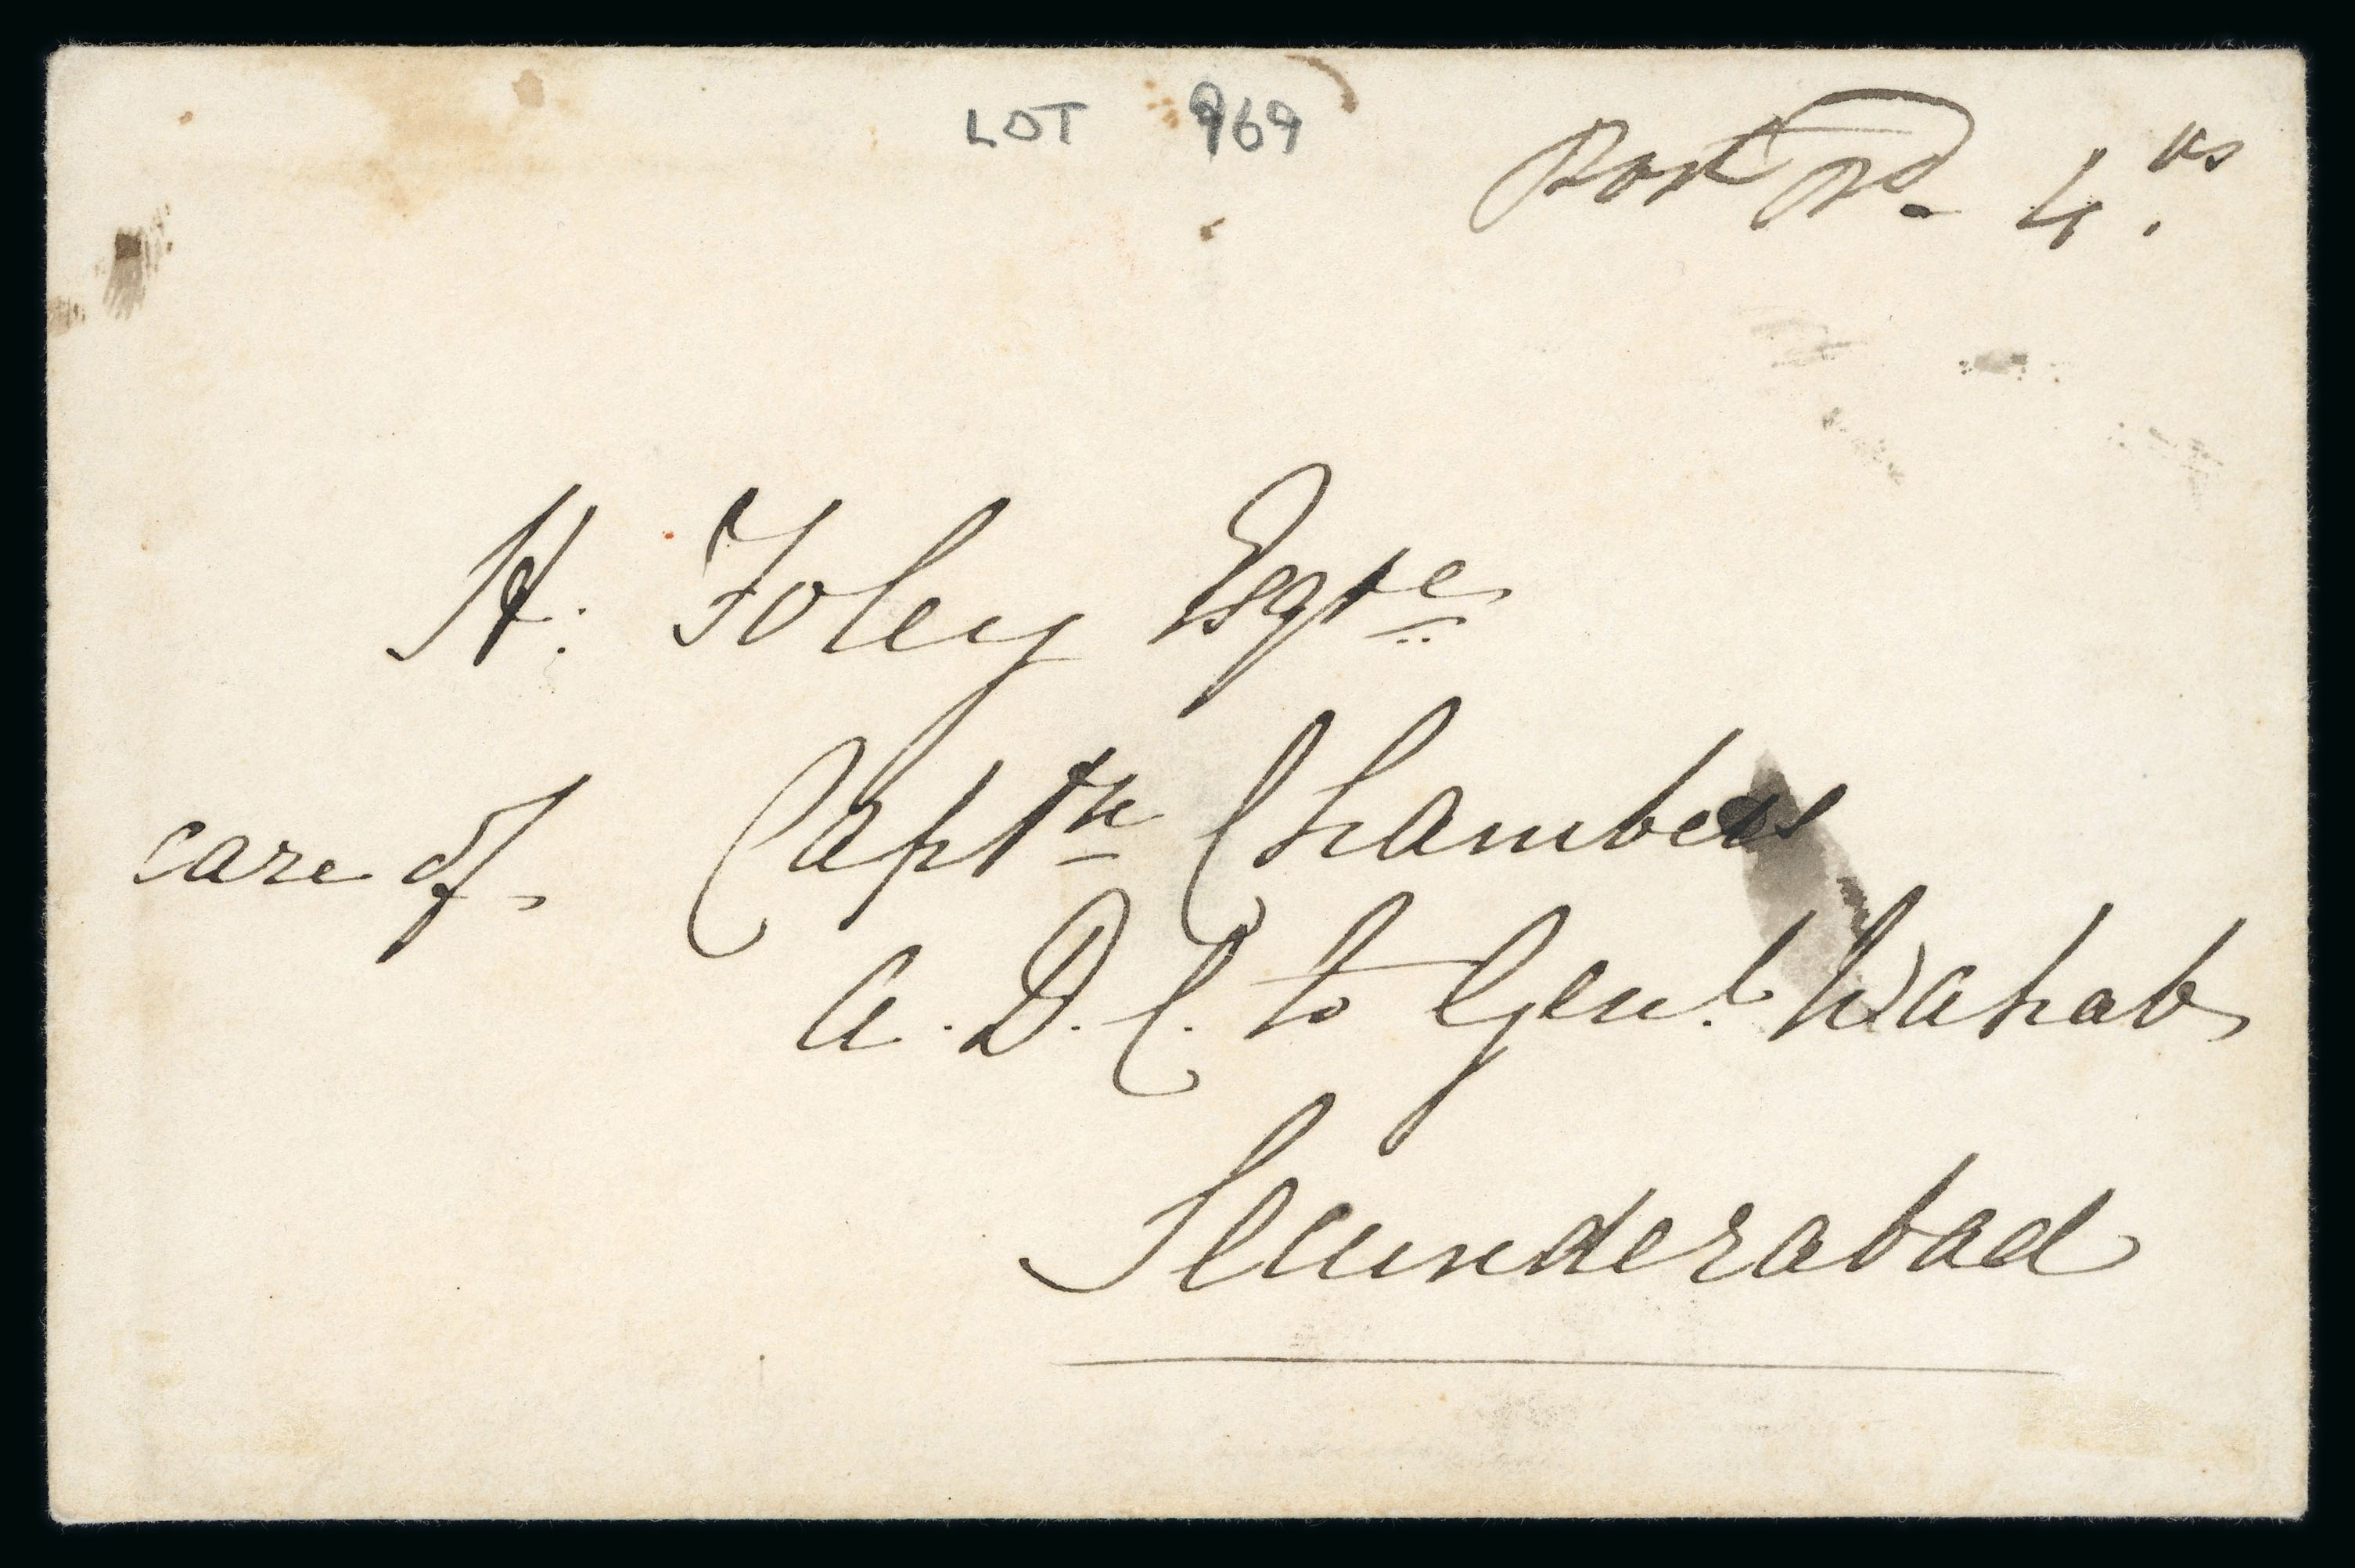 LOT 969
Post pd. 4.as
H: Foley Esqre
care of Captn Chambers
A.D.C. to Genl. Wahab
Secunderabad